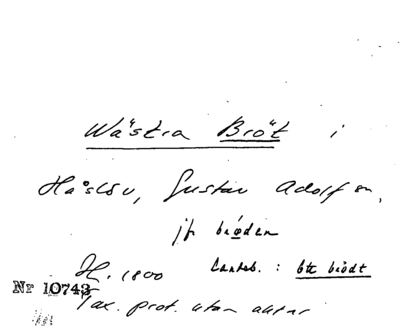 Wästra Bröt i
Håslöv, Gustav Adolf sn,
jfr brøden
H. 1800 Landsb. : btt brödt
Nr 10743
Tax. prot. utan aktnr